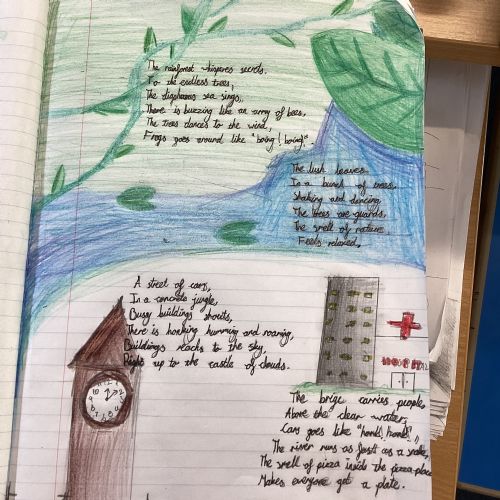 The rainforest whisperes secrets.
To the endless trees,
The diaphanous sea sings,
There is buzzing like an army of bees,
The trees dances to the wind,
Frogs goes around like "boing! boing!".
The lush leaves
In a bunch of trees,
Shaking and dancing
The trees are guards,
The smell of nature
Feels relaxed,
A street of cars,
In a concrete jungle,
Busy buildings shouts,
There is honking humming and roaring,
Buildings reachs to the sky,
Right up to the castle of clouds.
HOSPITAL
The brige carries people,
Above the clear water,
Cars goes like "honk! honk!",
The river runs as fast as a
The smell of pizza inside the pizza place
Makes everyone get a plate.